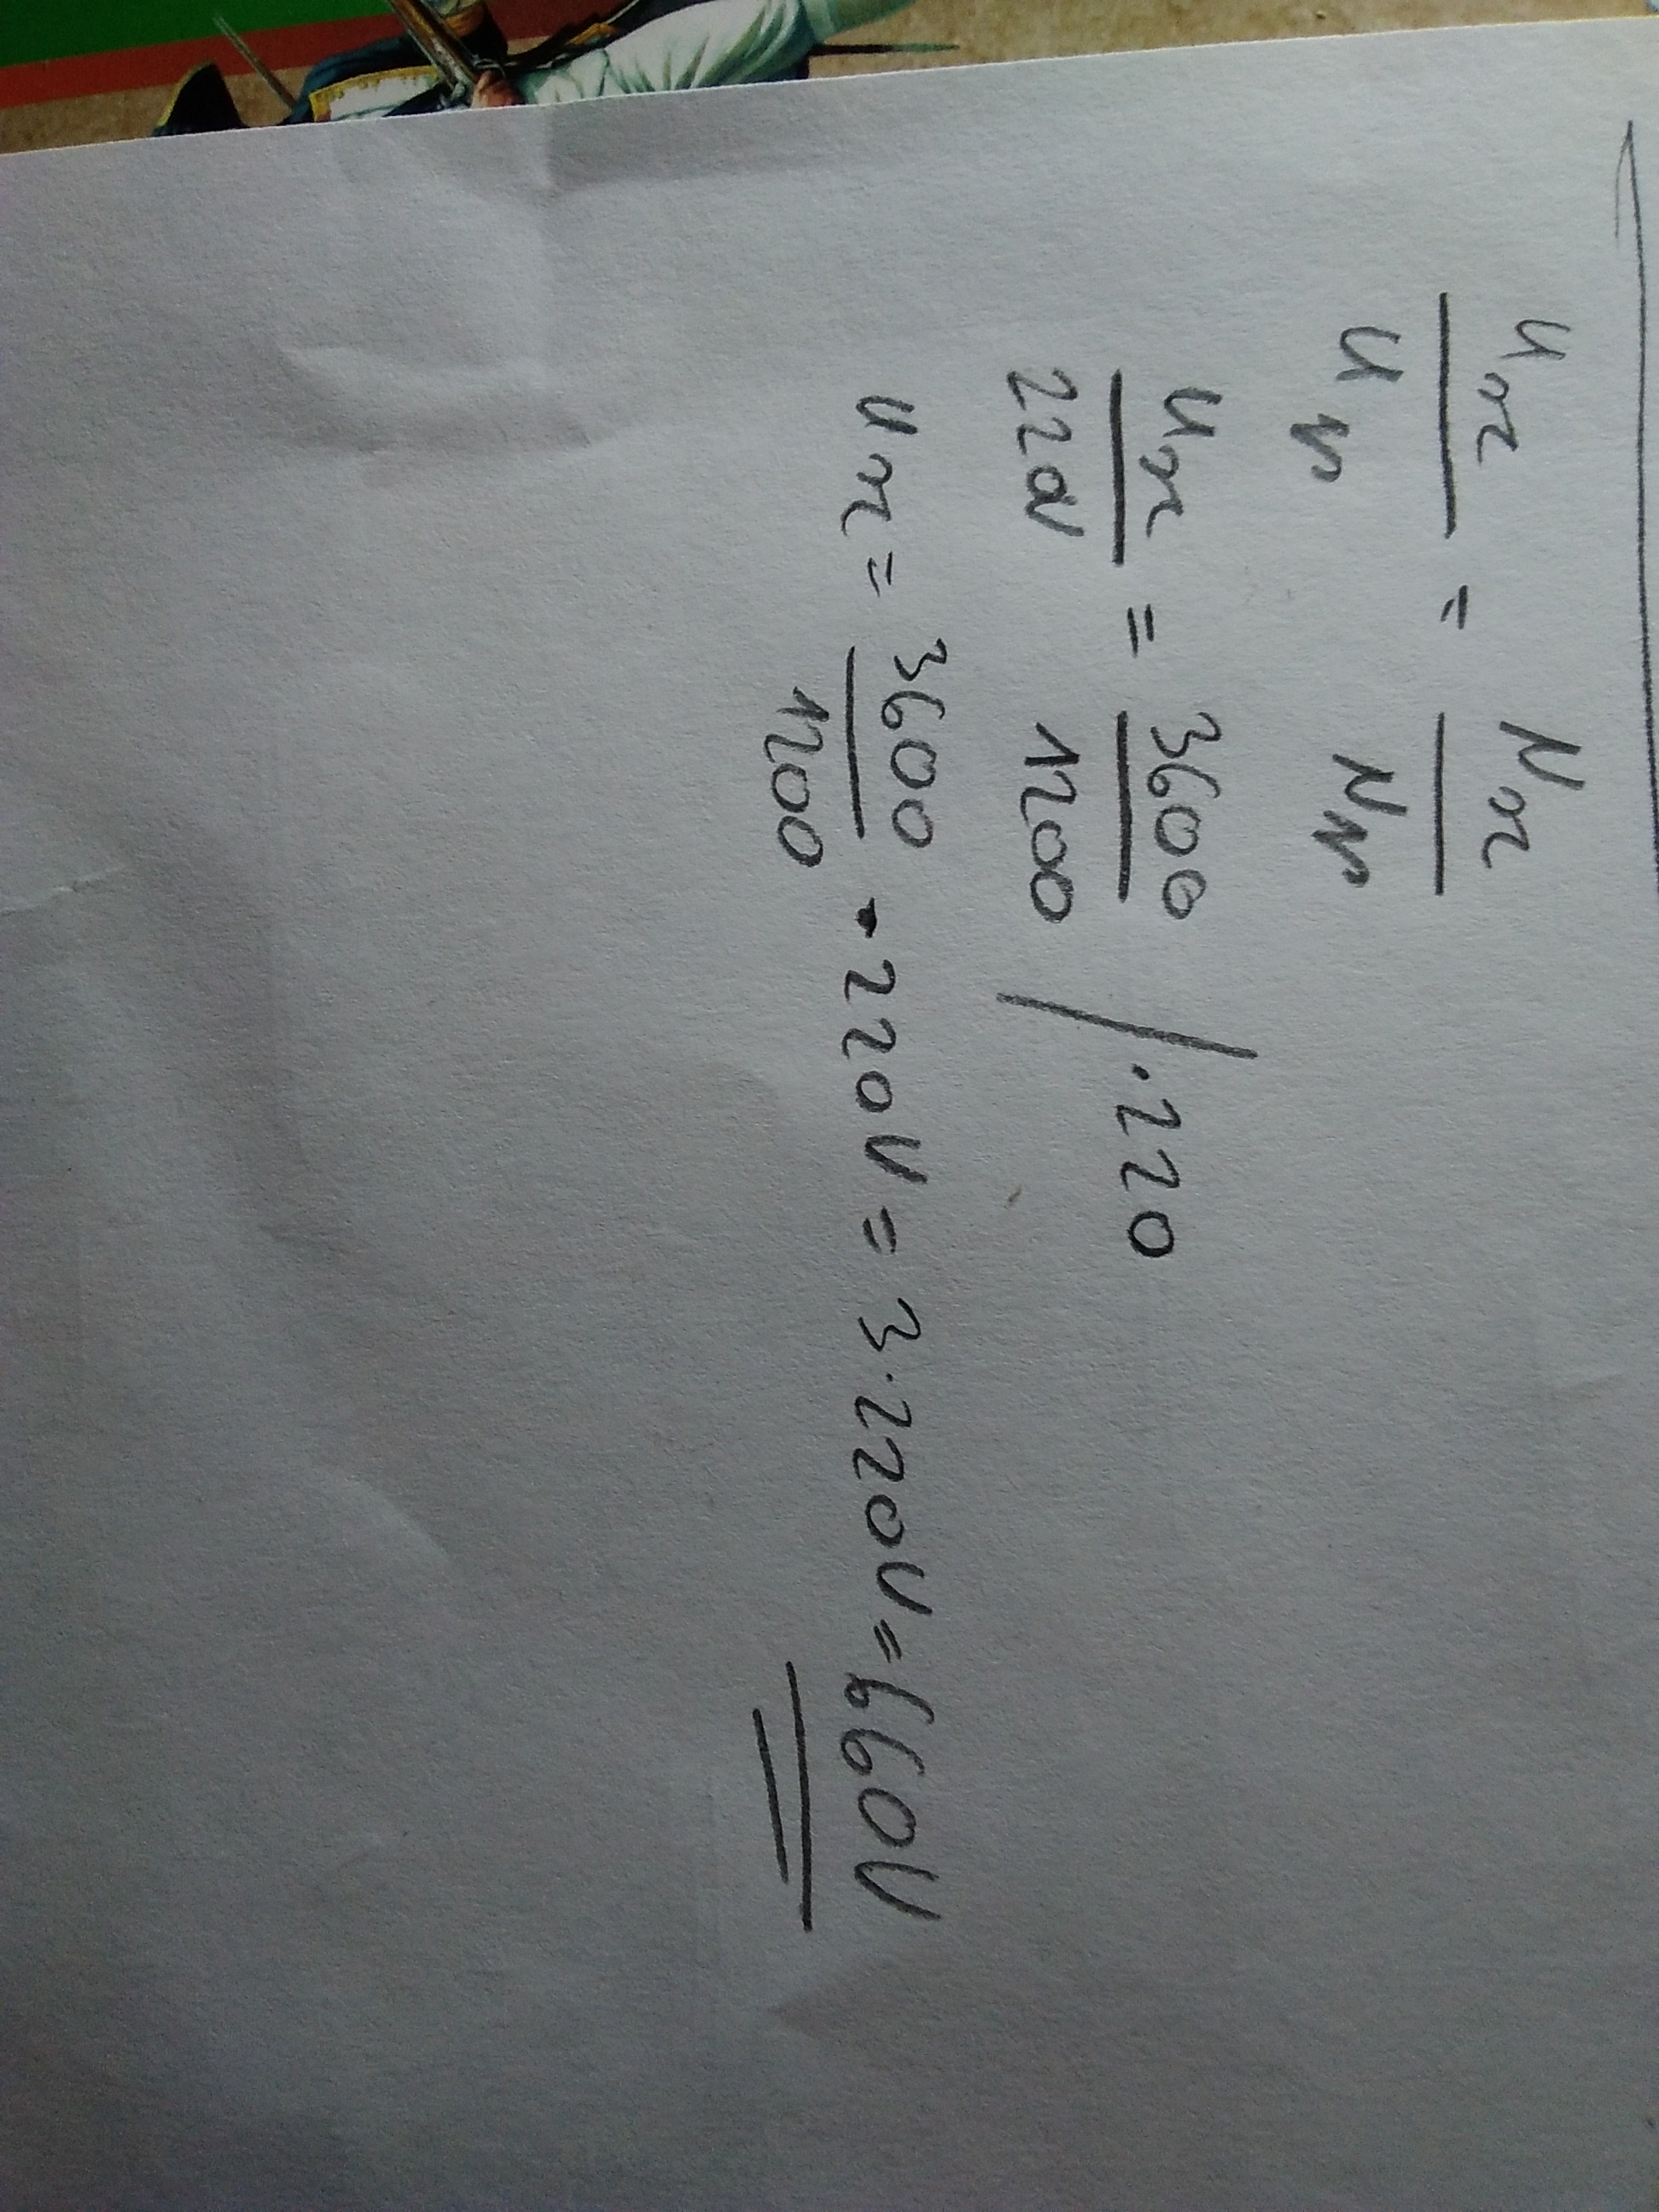 U₂/U₁ = N₂/N₁
U₂/220V = 3600/1200 / ·220
U₂ = 3600/1200 · 220V = 3·220V = 660V